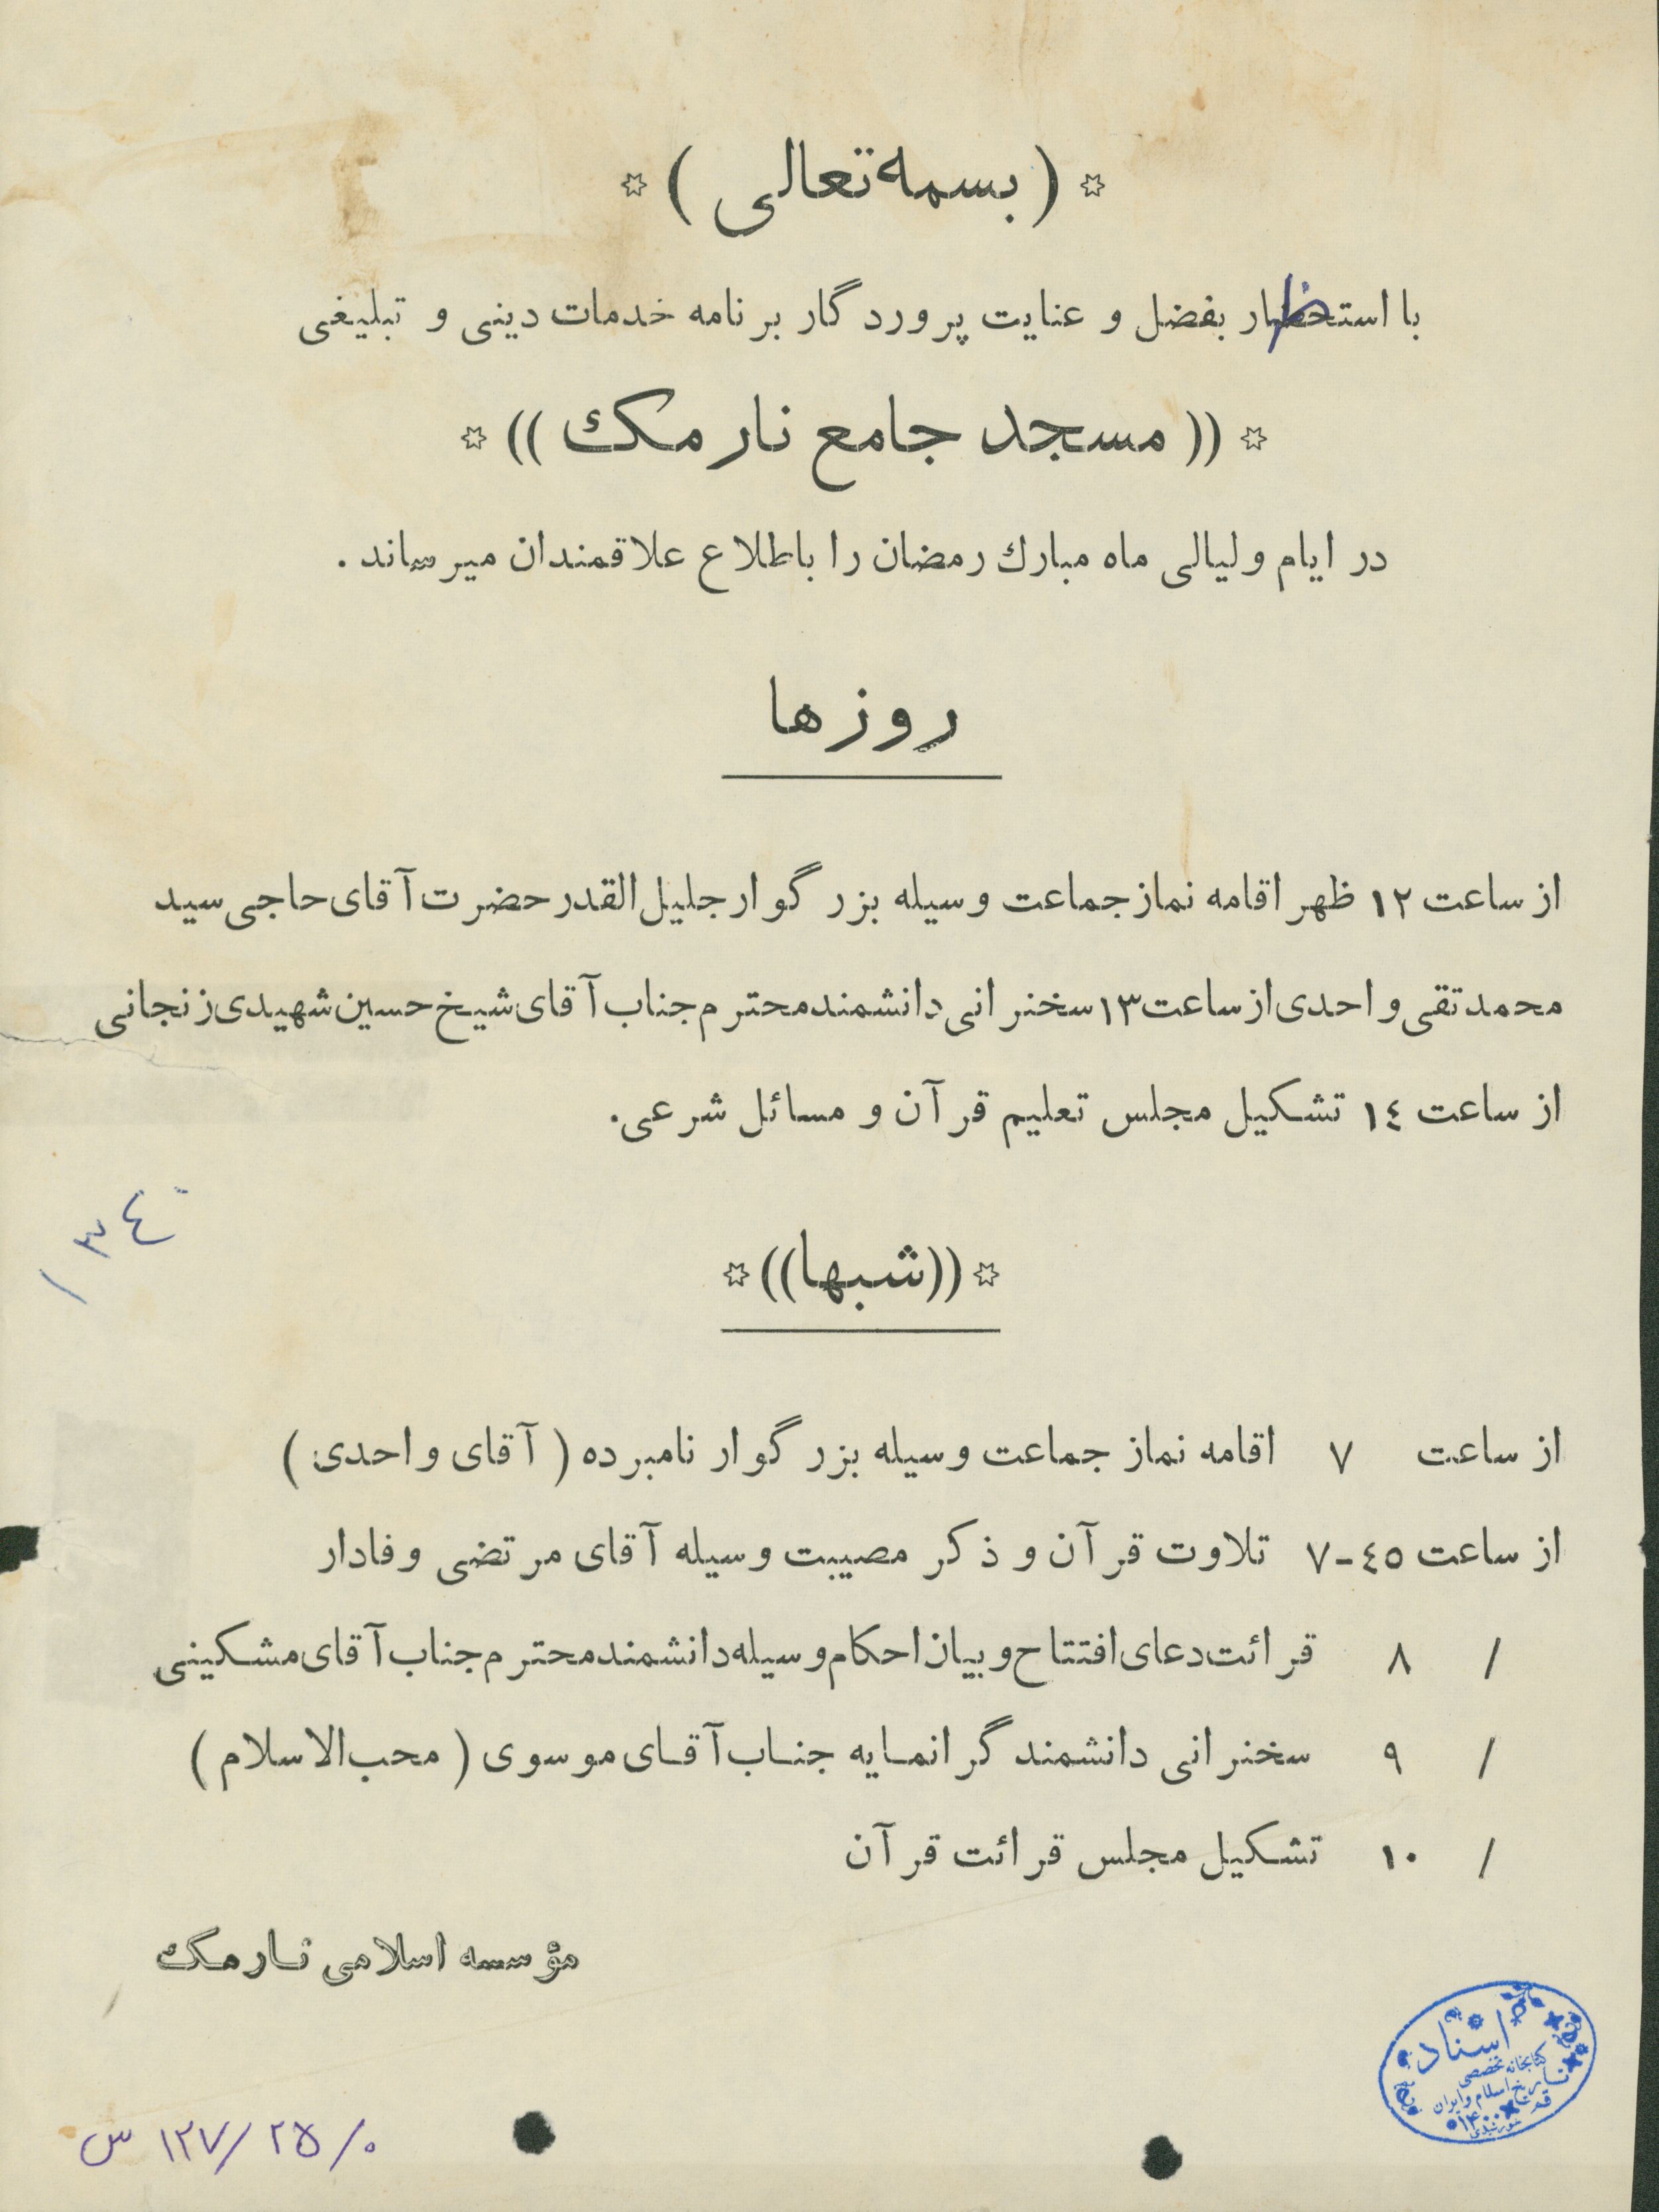 ( بسمه تعالی )
با استحظار بفضل و عنایت پروردگار برنامه خدمات دینی و تبلیغی
(( مسجد جامع نارمك ))
در ایام و لیالی ماه مبارك رمضان را باطلاع علاقمندان میرساند .
روزها
از ساعت ۱۲ ظهر اقامه نماز جماعت وسیله بزرگوار جلیل القدر حضرت آقای حاجی سید
محمد تقی واحدی از ساعت ۱۳ سخنرانی دانشمند محترم جناب آقای شیخ حسین شهیدی زنجانی
از ساعت ۱٤ تشکیل مجلس تعلیم قرآن و مسائل شرعی.
۱۳٤۰
((شبها))
از ساعت ۷ اقامه نماز جماعت وسیله بزرگوار نامبرده ( آقای واحدی )
از ساعت ٤٥-۷ تلاوت قرآن و ذکر مصیبت وسیله آقای مرتضی وفادار
/ ۸ قرائت دعای افتتاح و بیان احکام وسیله دانشمند محترم جناب آقای مشکینی
/ ۹ سخنرانی دانشمند گرانمایه جناب آقای موسوی ( محب الاسلام )
/ ۱۰ تشکیل مجلس قرائت قرآن
مؤسسه اسلامی نارمک
اسناد
کتابخانه تخصصی
تاریخ اسلام و ایران
قم
۱۲۷/۲۵/۰ س